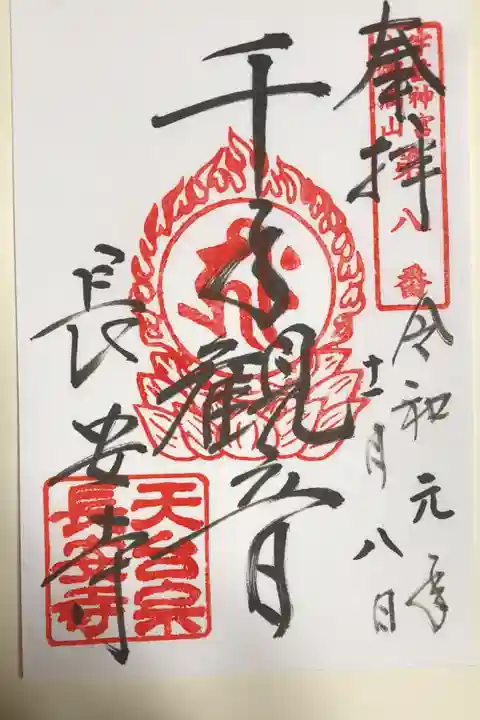 奉拝
神宮
山
第八番
令和元年
十一月八日
千手觀音
長安寺
天台宗
長安寺